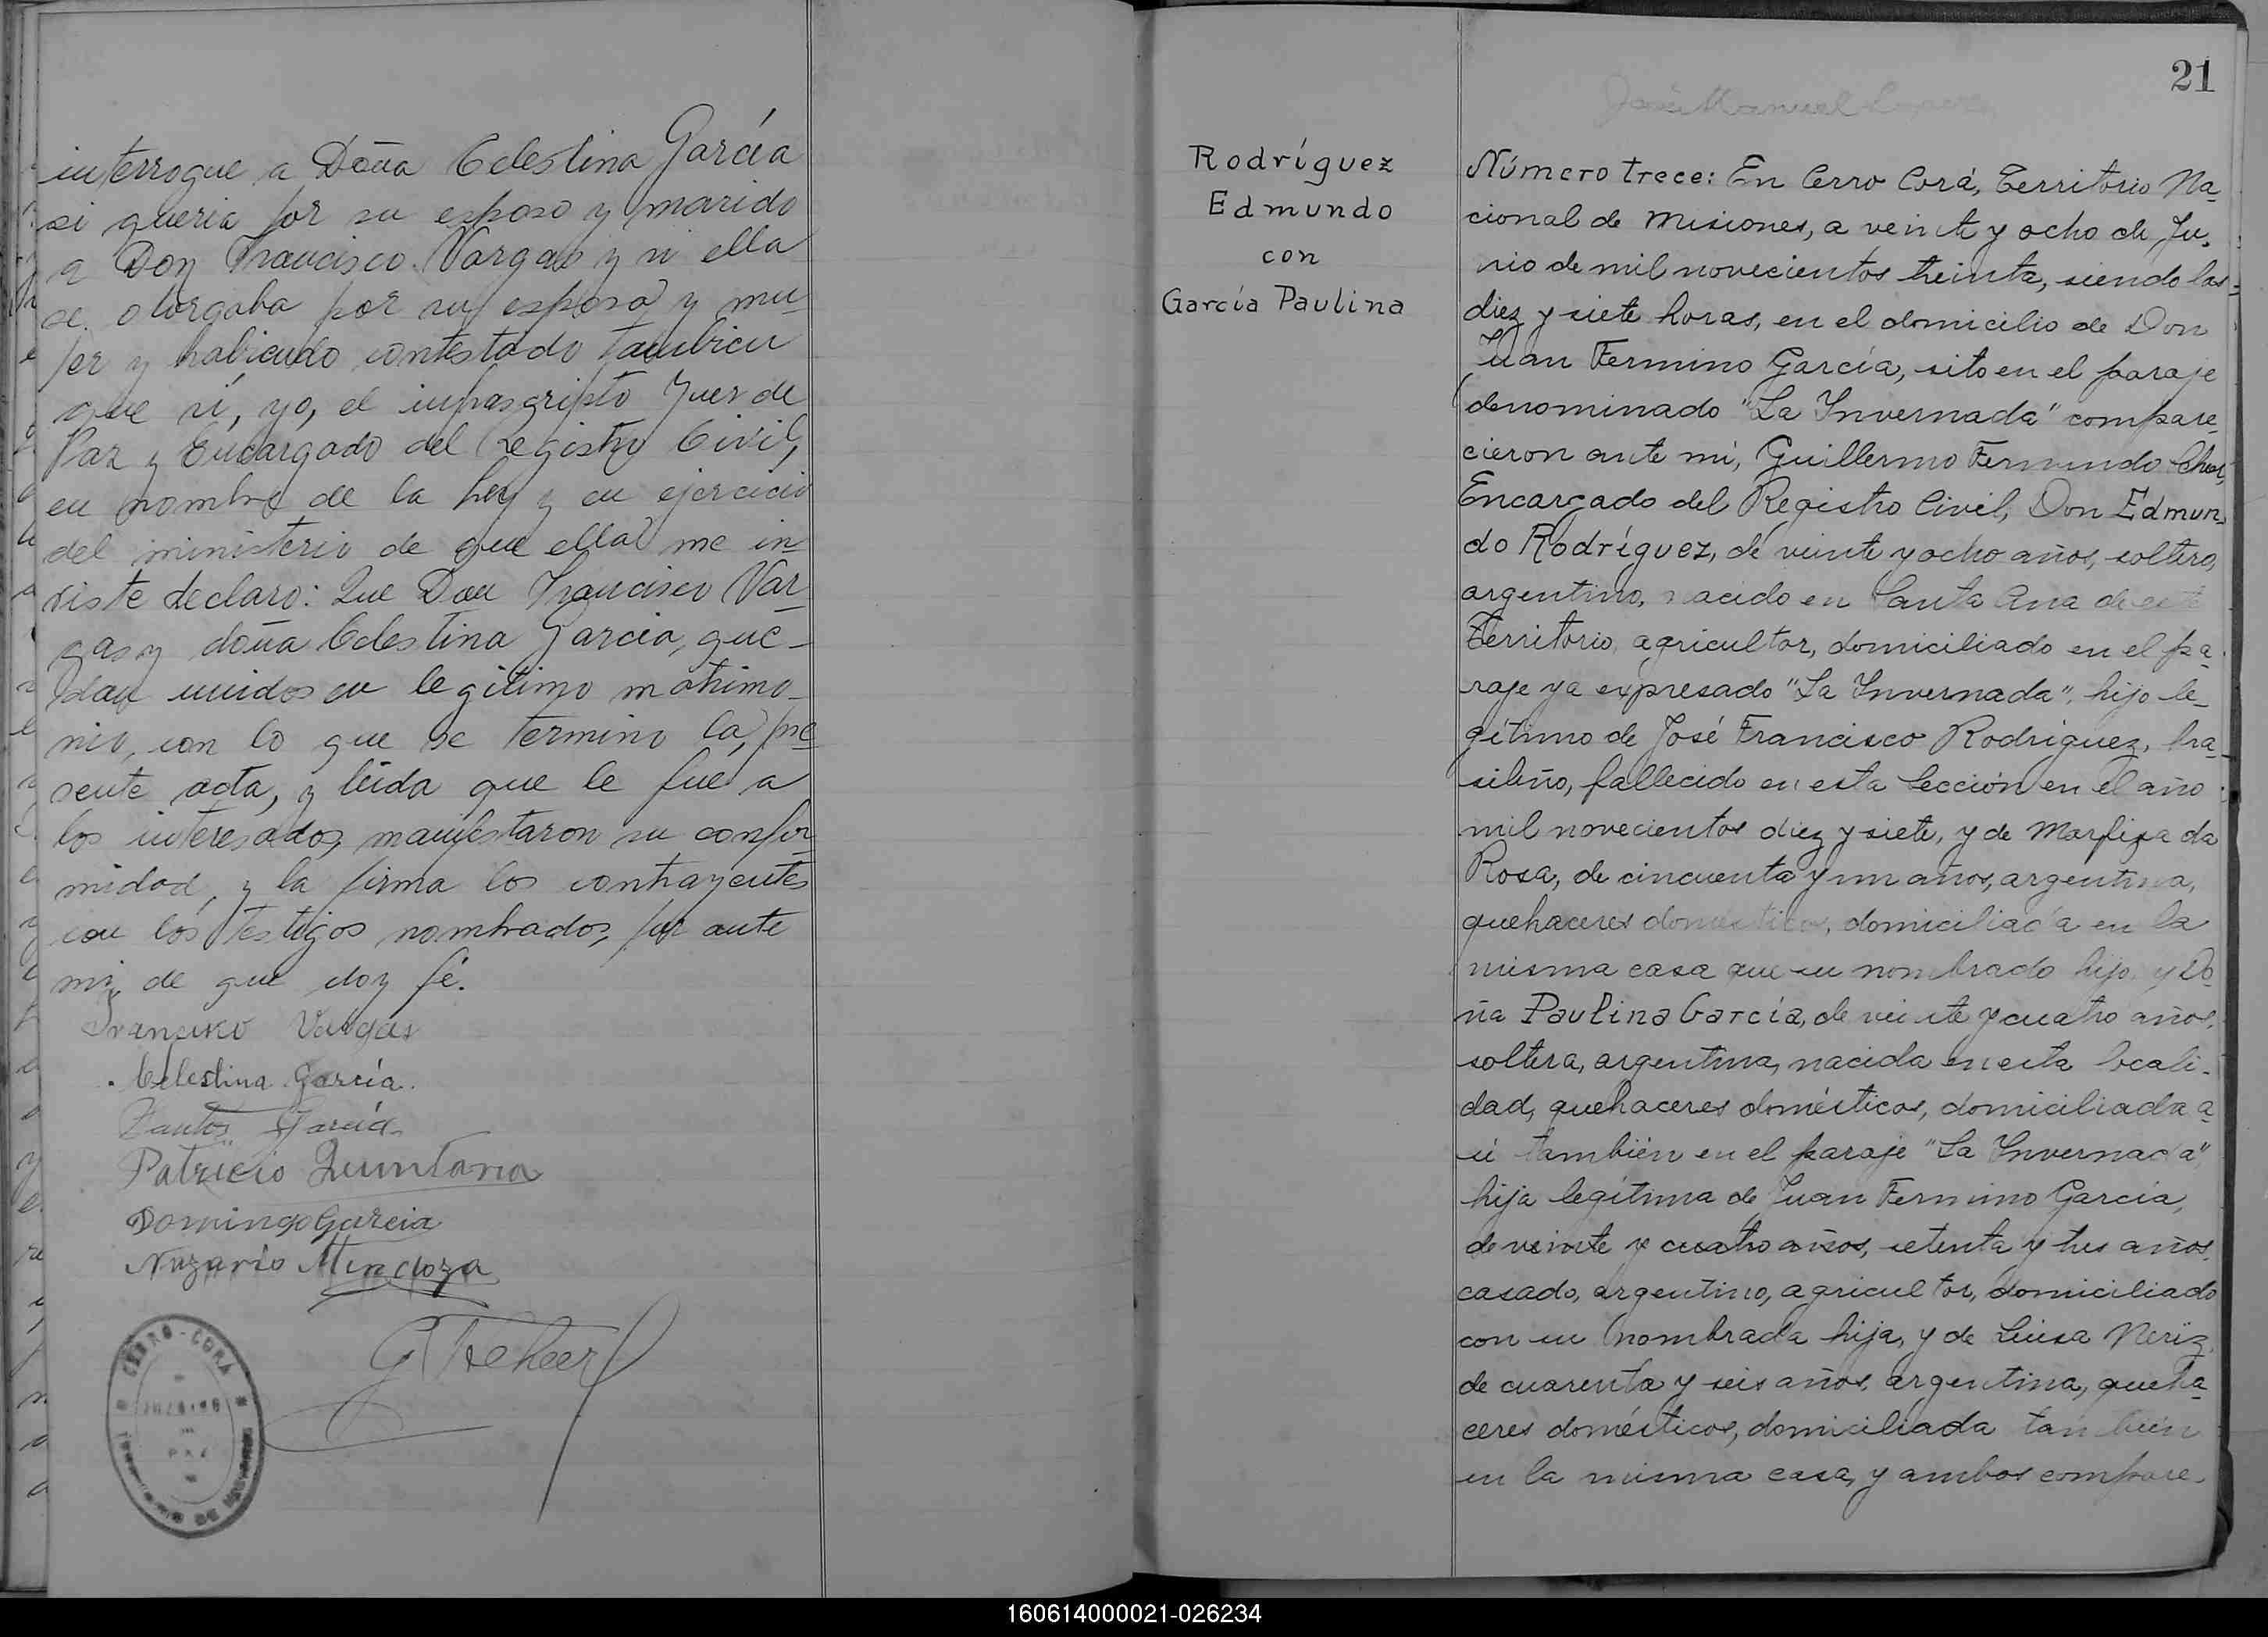 interrogue a Doña Celestina García
si queria por su esposo y marido
a Don Francisco Vargas y si ella
se otorgaba por su esposa y mu-
jer y habiendo contestado tambien
que sí, yo, el infrascripto Juez de
Paz y Encargado del Registro Civil,
en nombre de la Ley y en ejercicio
del ministerio de que ella me in-
viste declaro: Que Don Francisco Var-
gas y doña Celestina Garcia, que-
dan unidos en legitimo matrimo-
nio, con lo que se termino la pre-
sente acta, y leida que le fue a
los interesados, manifestaron su confor-
midad, y la firma los contrayentes
con los testigos nombrados, por ante
mi, de que doy fé.
Francisco Vargas
Celestina García.
Santos García
Patricio Quintana
Domingo Garcia
Nazario Mendoza
CERRO-CORA
JUZGADO
DE
PAZ
DE MISIONES
21
José Manuel Lopez
Rodríguez
Edmundo
con
García Paulina
Número trece: En Cerro Corá, Territorio Na-
cional de Misiones, a veinte y ocho de Ju-
nio de mil novecientos treinta, siendo las
diez y siete horas, en el domicilio de Don
Juan Fermino García, sito en el paraje
denominado "La Invernada" compare-
cieron ante mi, Guillermo Fernando
Encargado del Registro Civil, Don Edmun-
do Rodríguez, de veinte y ocho años, soltero,
argentino, nacido en Santa Ana de este
Territorio, agricultor, domiciliado en el pa-
raje ya expresado "La Invernada", hijo le-
gítimo de José Francisco Rodriguez, bra-
sileño, fallecido en esta Sección en el año
mil novecientos diez y siete, y de Marfiza da
Rosa, de cincuenta y un años, argentina,
quehaceres domésticos, domiciliada en la
misma casa que su nombrado hijo y Do-
ña Paulina García, de veinte y cuatro años,
soltera, argentina, nacida en esta locali-
dad, quehaceres domésticos, domiciliada a-
sí también en el paraje "La Invernada"
hija legítima de Juan Fermino García,
de veinte y cuatro años, setenta y tres años,
casado, argentino, agricultor, domiciliado
con su nombrada hija, y de Luisa Neríz,
de cuarenta y seis años, argentina, queha-
ceres domésticos, domiciliada tambien
en la misma casa, y ambos compare-
160614000021-026234